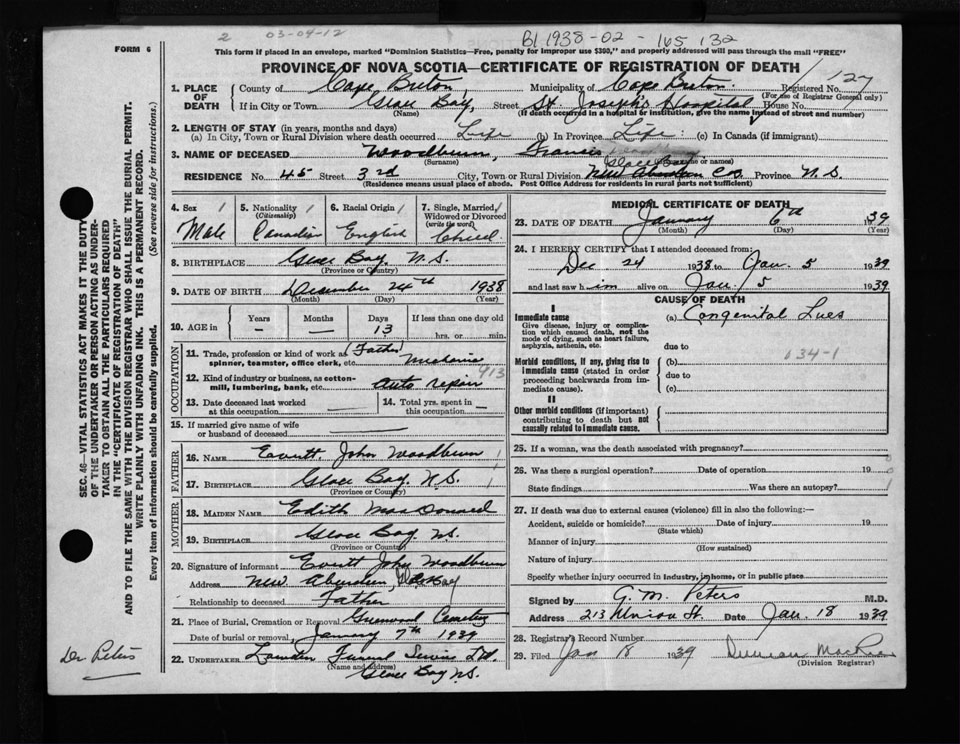 2 03-04-12
B1 1938-02-165132
FORM 6
This form if placed in an envelope, marked "Dominion Statistics—Free, penalty for improper use $300," and properly addressed will pass through the mail "FREE"
PROVINCE OF NOVA SCOTIA—CERTIFICATE OF REGISTRATION OF DEATH
127
1. PLACE OF DEATH
County of Cape Breton, Municipality of Cape Breton. Registered No.
(For use of Registrar General only)
If in City or Town Glace Bay, Street St. Joseph's Hospital House No.
(Name) (If death occurred in a hospital or institution, give the name instead of street and number)
2. LENGTH OF STAY (in years, months and days)
(a) In City, Town or Rural Division where death occurred Life (b) In Province Life. (c) In Canada (if immigrant)
3. NAME OF DECEASED Woodburn, Francis
(Surname) names)
Glace Bay
RESIDENCE No. 45 Street 3rd City, Town or Rural Division New Aberdeen C.B. Province N.S.
(Residence means usual place of abode. Post Office Address for residents in rural parts not sufficient)
4. Sex Male
5. Nationality (Citizenship) Canadian
6. Racial Origin English
7. Single, Married, Widowed or Divorced (write the word) Child
8. BIRTHPLACE Glace Bay N.S.
(Province or Country)
9. DATE OF BIRTH December 24th 1938
(Month) (Day) (Year)
10. AGE in Years — Months — Days 13 If less than one day old
hrs. or min.
OCCUPATION
11. Trade, profession or kind of work as spinner, teamster, office clerk, etc. (Father) Mechanic
12. Kind of industry or business, as cotton-mill, lumbering, bank, etc. auto repair 913
13. Date deceased last worked at this occupation
14. Total yrs. spent in this occupation —
15. If married give name of wife or husband of deceased
FATHER
16. NAME Everett John Woodburn
17. BIRTHPLACE Glace Bay. N.S.
(Province or Country)
MOTHER
18. MAIDEN NAME Edith MacDonald
19. BIRTHPLACE Glace Bay N.S.
(Province or Country)
20. Signature of informant Everett John Woodburn
Address New Aberdeen, Glace Bay
Relationship to deceased Father
21. Place of Burial, Cremation or Removal Greenwood Cemetery
Date of burial or removal January 7th 1939
22. UNDERTAKER Funeral Service Ltd.
(Name and address)
Glace Bay N.S.
MEDICAL CERTIFICATE OF DEATH
23. DATE OF DEATH January 6th 1939
(Month) (Day) (Year)
24. I HEREBY CERTIFY that I attended deceased from:
Dec 24 1938 to Jan. 5 1939
and last saw him alive on Jan. 5 1939
CAUSE OF DEATH
I
Immediate cause
Give disease, injury or complication which caused death, not the mode of dying, such as heart failure, asphyxia, asthenia, etc.
(a) Congenital Lues
due to
034-1
Morbid conditions, if any, giving rise to immediate cause (stated in order proceeding backwards from immediate cause).
(b)
due to
(c)
II
Other morbid conditions (if important) contributing to death but not causally related to immediate cause.
25. If a woman, was the death associated with pregnancy?
26. Was there a surgical operation? Date of operation 19
State findings Was there an autopsy?
27. If death was due to external causes (violence) fill in also the following:—
Accident, suicide or homicide? Date of injury 19
(State which)
Manner of injury
(How sustained)
Nature of injury
Specify whether injury occurred in industry, in home, or in public place
Signed by G. M. Peters M.D.
Address 213 Union St. Date Jan. 18 1939
28. Registrar's Record Number
29. Filed Jan 18 1939 Duncan MacRae
(Division Registrar)
SEC. 46—VITAL STATISTICS ACT MAKES IT THE DUTY
OF THE UNDERTAKER OR PERSON ACTING AS UNDERTAKER TO OBTAIN ALL THE PARTICULARS REQUIRED
IN THE "CERTIFICATE OF REGISTRATION OF DEATH"
AND TO FILE THE SAME WITH THE DIVISION REGISTRAR WHO SHALL ISSUE THE BURIAL PERMIT.
WRITE PLAINLY WITH UNFADING INK. THIS IS A PERMANENT RECORD.
Every item of information should be carefully supplied. (See reverse side for instructions.)
Dr Peters